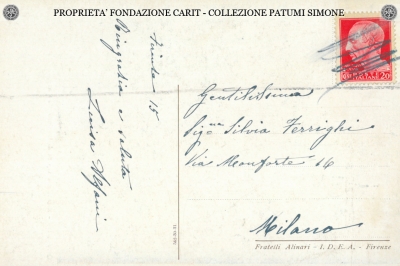 PROPRIETA' FONDAZIONE CARIT - COLLEZIONE PATUMI SIMONE
15
Ringrazia e saluta
Luisa Alfani
Gentilissima
Sig.na Silvia Ferrighi
Via Monforte 16
Milano
Fratelli Alinari - I. D. E. A. - Firenze